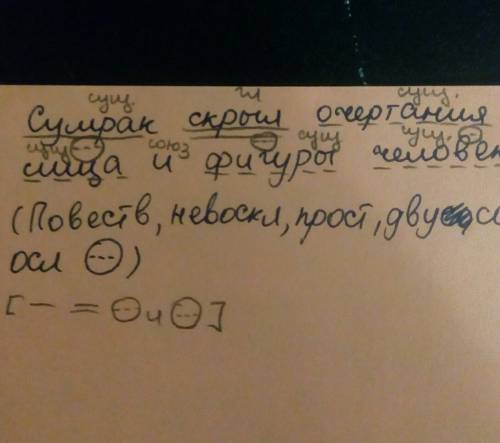 сущ. гл сущ.
Сумрак скрыл очертания
сущ союз сущ сущ.
лица и фигуры человек
(Повеств, невоскл, прост, двус
осл ---)
[ — = --- и --- ]